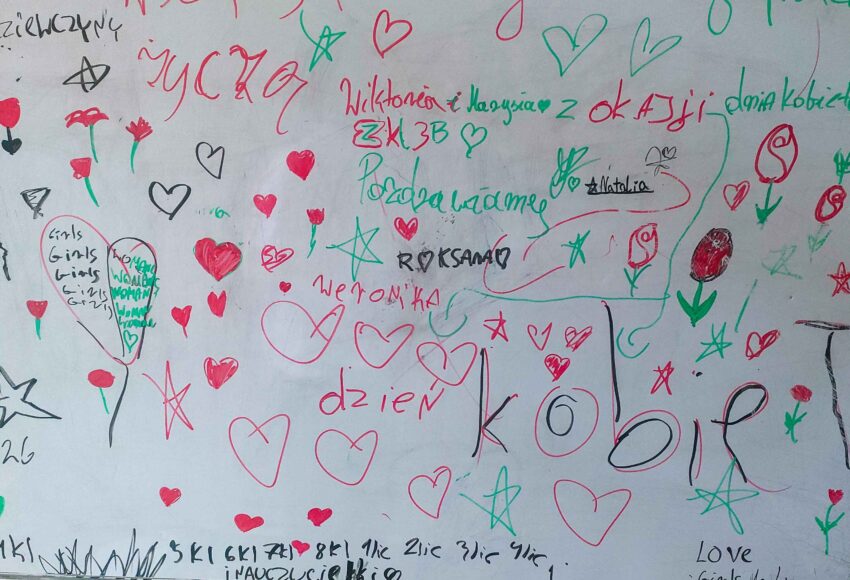 DZIEWCZYNY
życzą
Wiktoria i Marysia z okazji dnia kobiet
Z KL 3B
Pozdrawiamy
Natalia
ROKSANA
weronika
Girls
Girls
Girls
Girls
Girls
WOMANS
WOMANS
WOMANS
dzień
kobiet
26
5 KL 6 KL 7 KL 8 KL 1 lic 2 lic 3 lic 4 lic
i NAUCZYCIELKI
LOVE